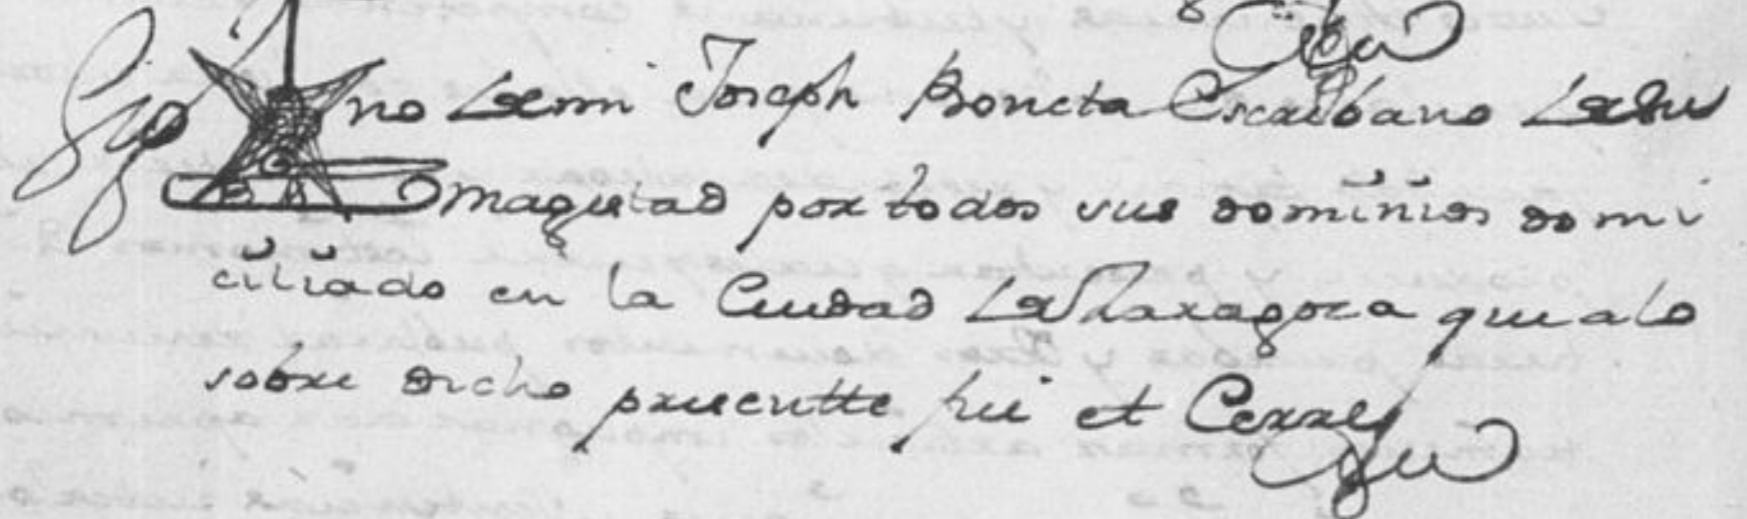 Sig no de mi Joseph Boneta Escribano de su
magestad por todos sus dominios domi
ciliado en la Ciudad de Zaragoza que a lo
sobre dicho presentte fui et Cerre